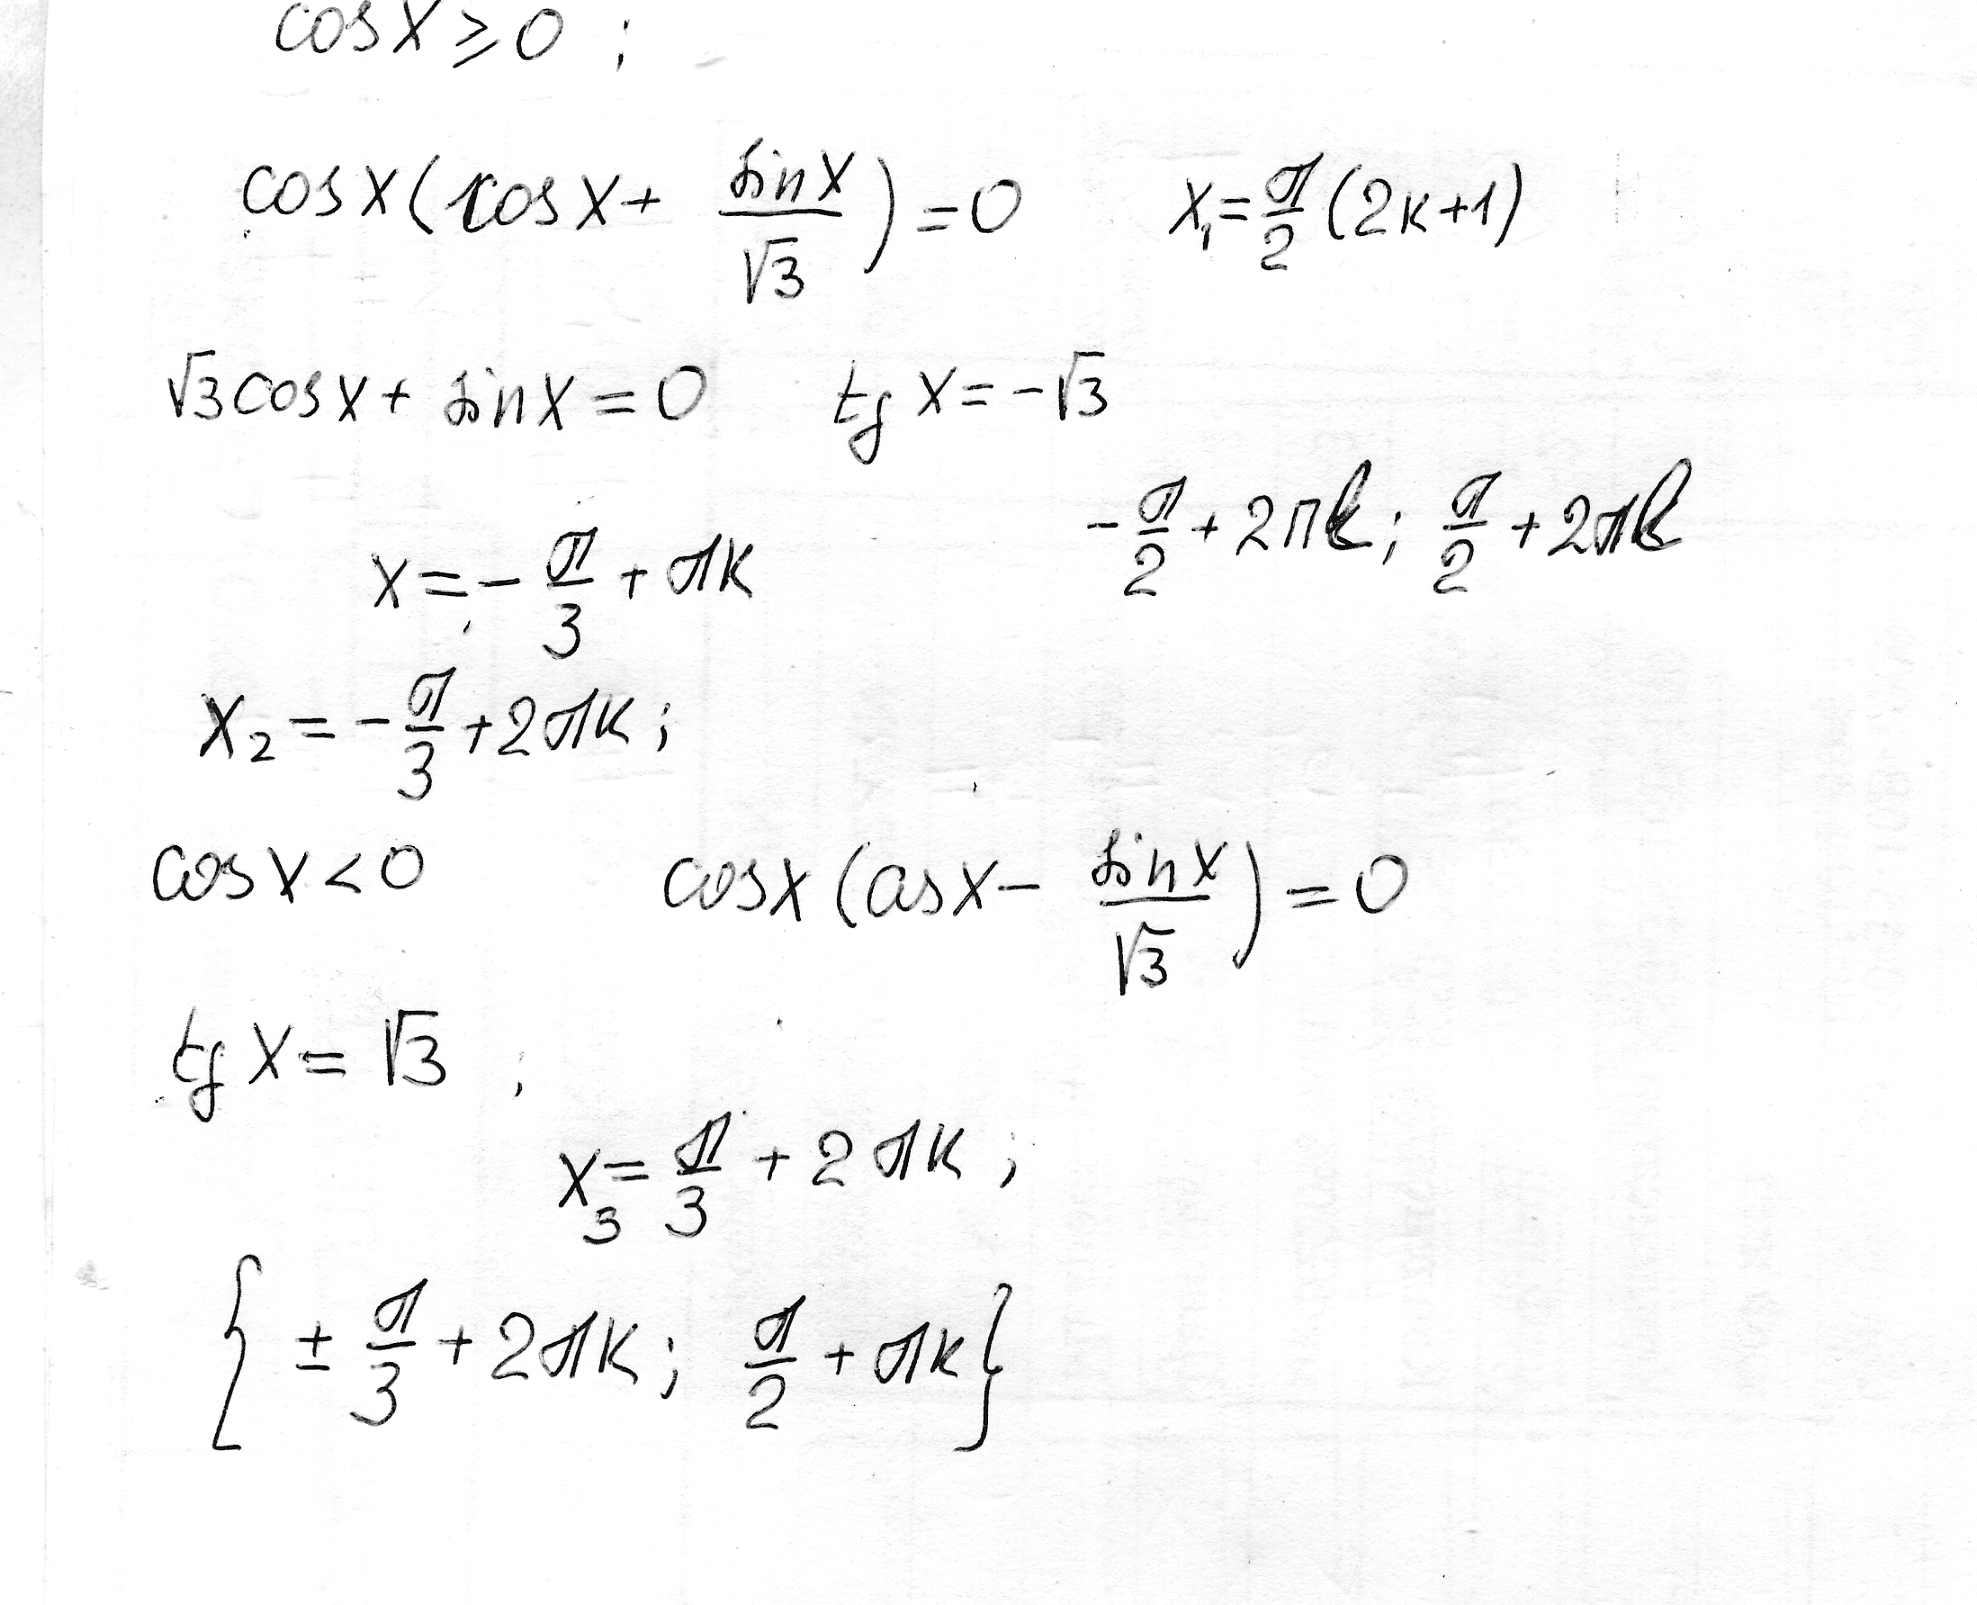 cos x ≥ 0 ;
cos x ( cos x + sin x / √3 ) = 0    x₁ = π/2 (2к+1)
√3 cos x + sin x = 0    tg x = -√3
-π/2 + 2πk ; π/2 + 2πk
x = -π/3 + πк
x₂ = -π/3 + 2πк ;
cos x < 0    cos x ( cos x - sin x / √3 ) = 0
tg x = √3 ;
x₃ = π/3 + 2πк ;
{ ± π/3 + 2πк ; π/2 + πк }